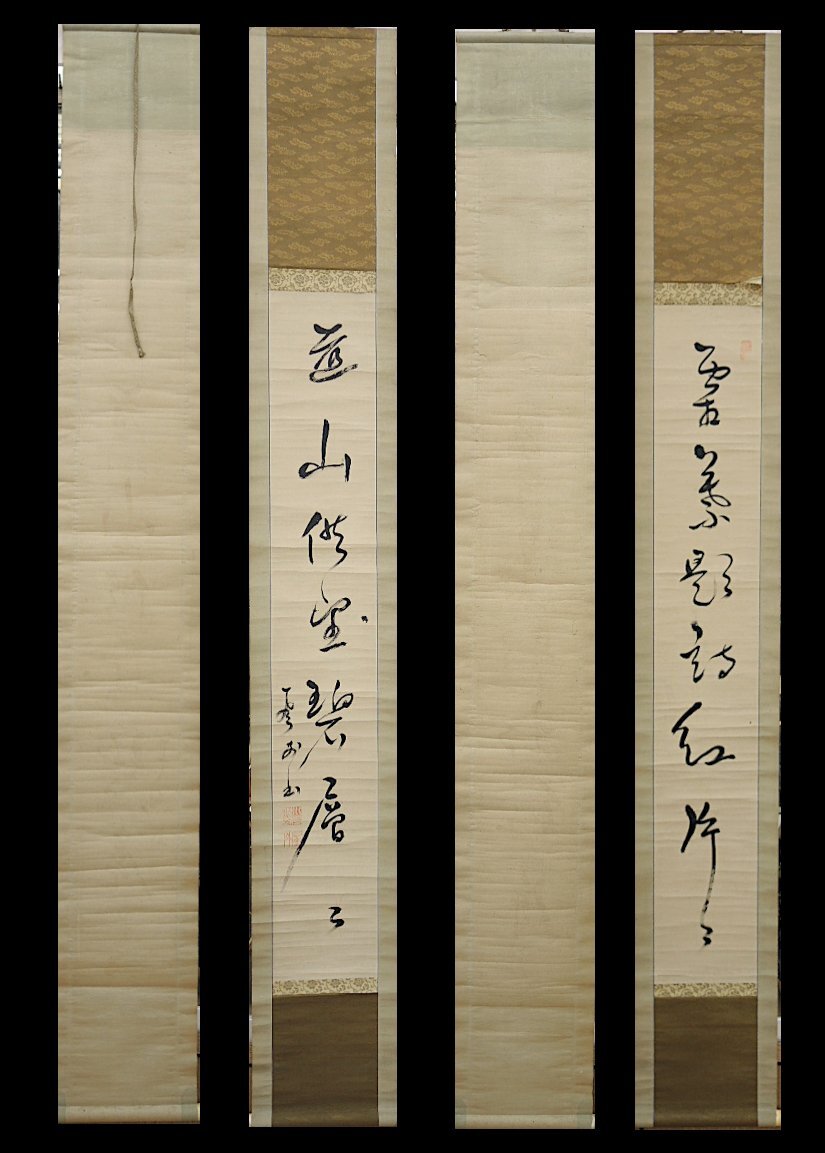 霜葉題詩紅片々
遠山供望碧層々